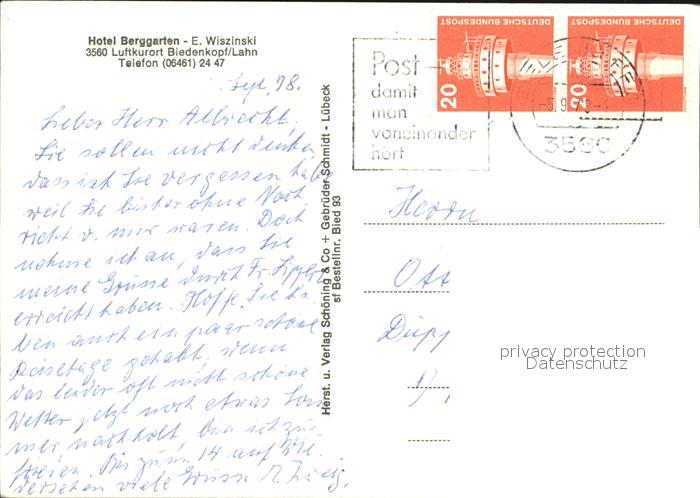 Hotel Berggarten - E. Wiszinski
3560 Luftkurort Biedenkopf/Lahn
Telefon (06461) 24 47
Sept. 78.
Lieber Herr Albrecht,
Sie sollen nicht denken,
dass ich Sie vergessen habe
weil Sie bisher ohne Nach
richt v. mir waren. Doch
nehme ich an, dass Sie
meine Grüsse durch Fr.
erreicht haben. Hoffe, Sie ha
ben auch ein paar schöne
Reisetage gehabt, wenn
das leider oft nicht schöne
Wetter jetzt noch etwas Som
mer nachholt, bin ich zu
frieden. Bis zum 14 auf Wie
dersehen viele Grüsse
Herst. u. Verlag Schöning & Co + Gebrüder Schmidt - Lübeck
sf Bestellnr. Bied 93
Post
damit
man
voneinander
hört
DEUTSCHE BUNDESPOST
20
DEUTSCHE BUNDESPOST
20
3560
Herrn
Ott
Düpp
privacy protection
Datenschutz